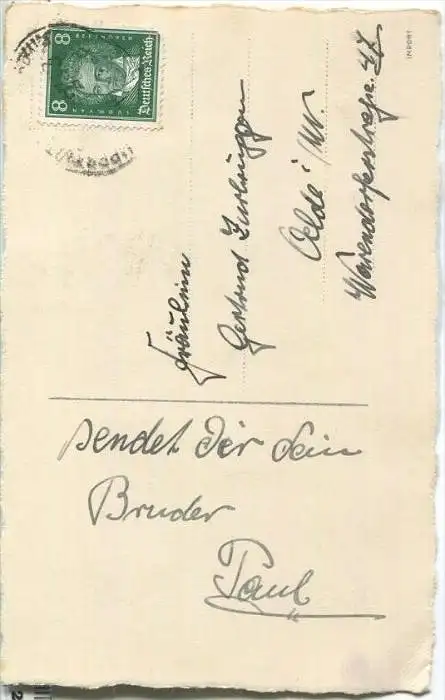 8 Deutsches Reich 8
LUDWIG VAN
BEETHOVEN
IMPORT
Fräulein
Gertrud Zurbrüggen
Oelde i/W.
Warendorferstraße 47
sendet Dir Dein
Bruder
Paul